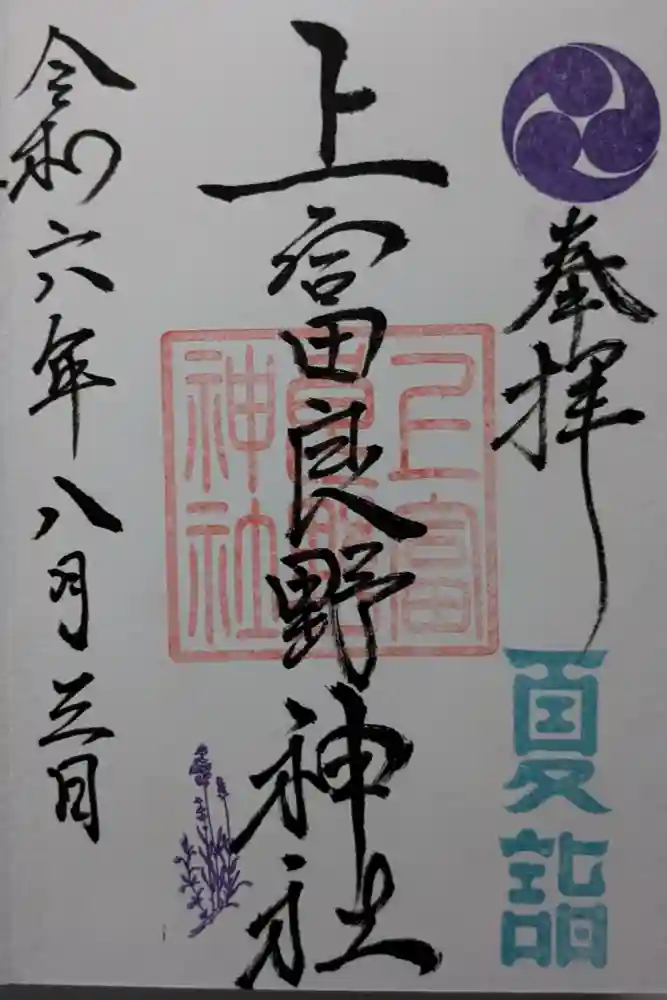 奉拝
夏詣
上富良野神社
上富
良野
神社
令和六年八月三日